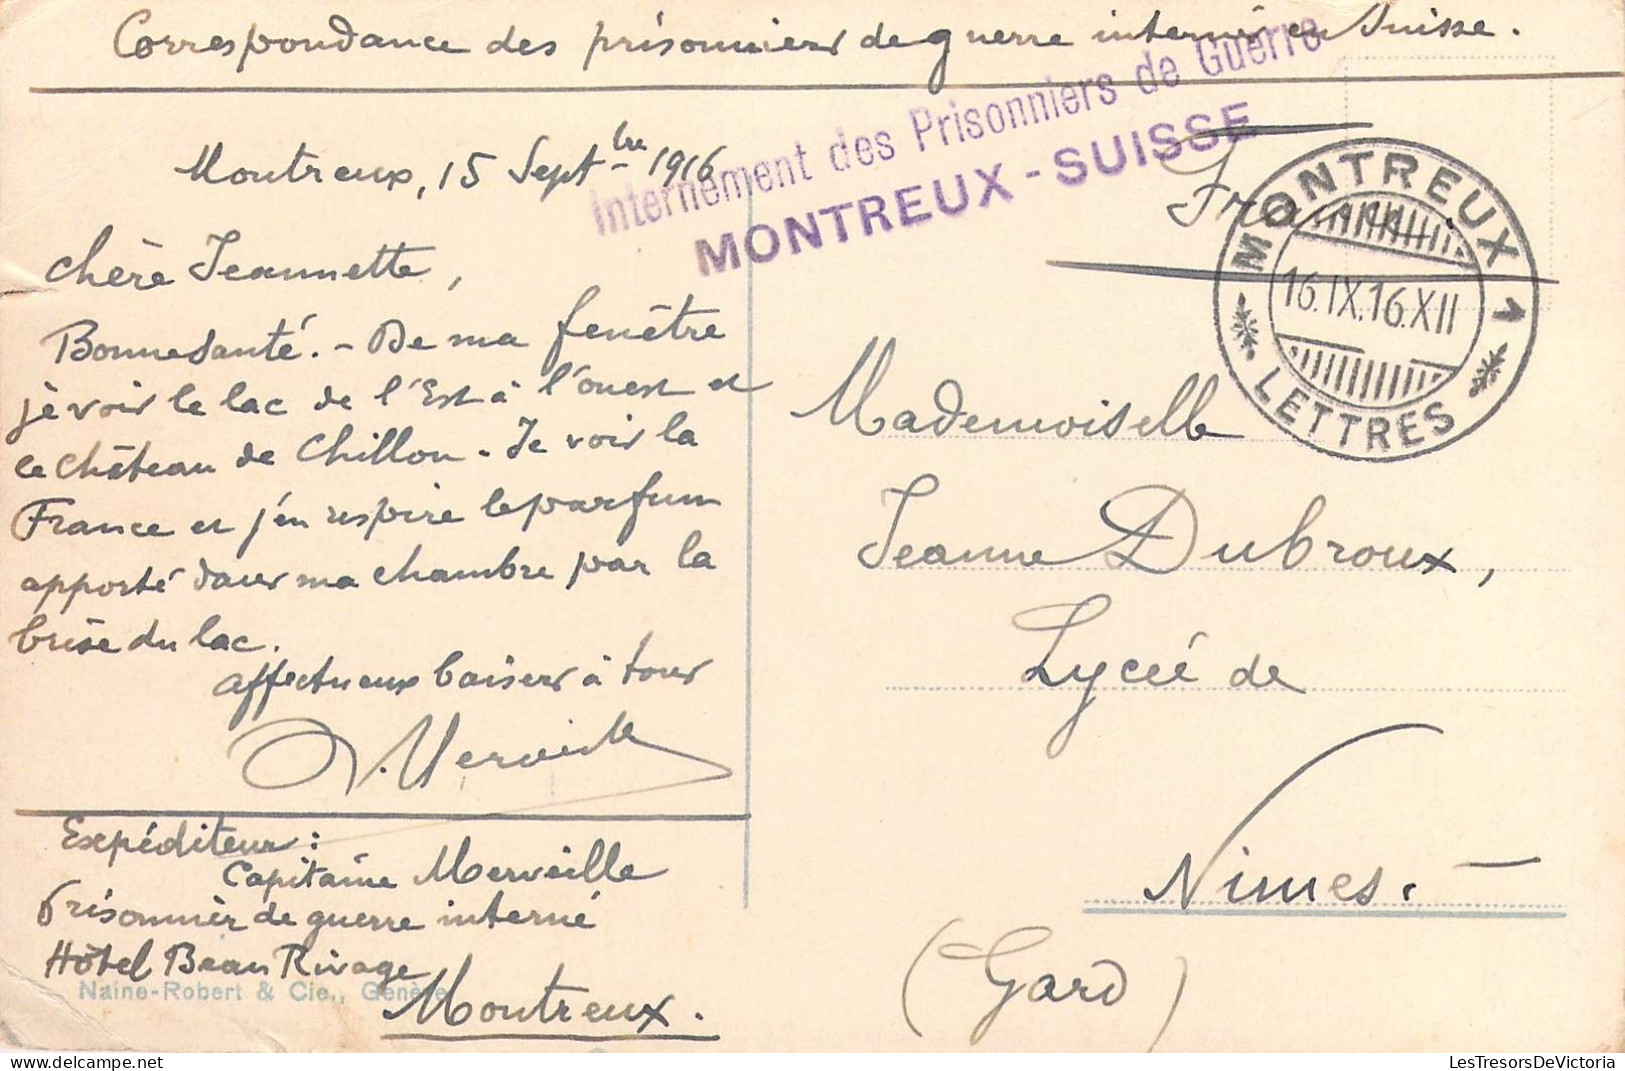 Correspondance des prisonniers de guerre internés en Suisse.
Internement des Prisonniers de Guerre
MONTREUX - SUISSE
Montreux, 15 Septbre 1916
France
MONTREUX 1
16.IX.16.XII
LETTRES
Chère Jeannette,
Bonne santé. - De ma fenêtre
je vois le lac de l'Est à l'ouest et
le château de Chillon. Je vois la
France et j'en respire le parfum
apporté dans ma chambre par la
brise du lac.
Affectueux baisers à tous
Merveille
Expéditeur:
Capitaine Merveille
Prisonnier de guerre interné
Hôtel Beau Rivage
Montreux.
Naine-Robert & Cie., Genève
Mademoiselle
Jeanne Dubroux,
Lycée de
Nimes. —
(Gard)
LesTresorsDeVictoria